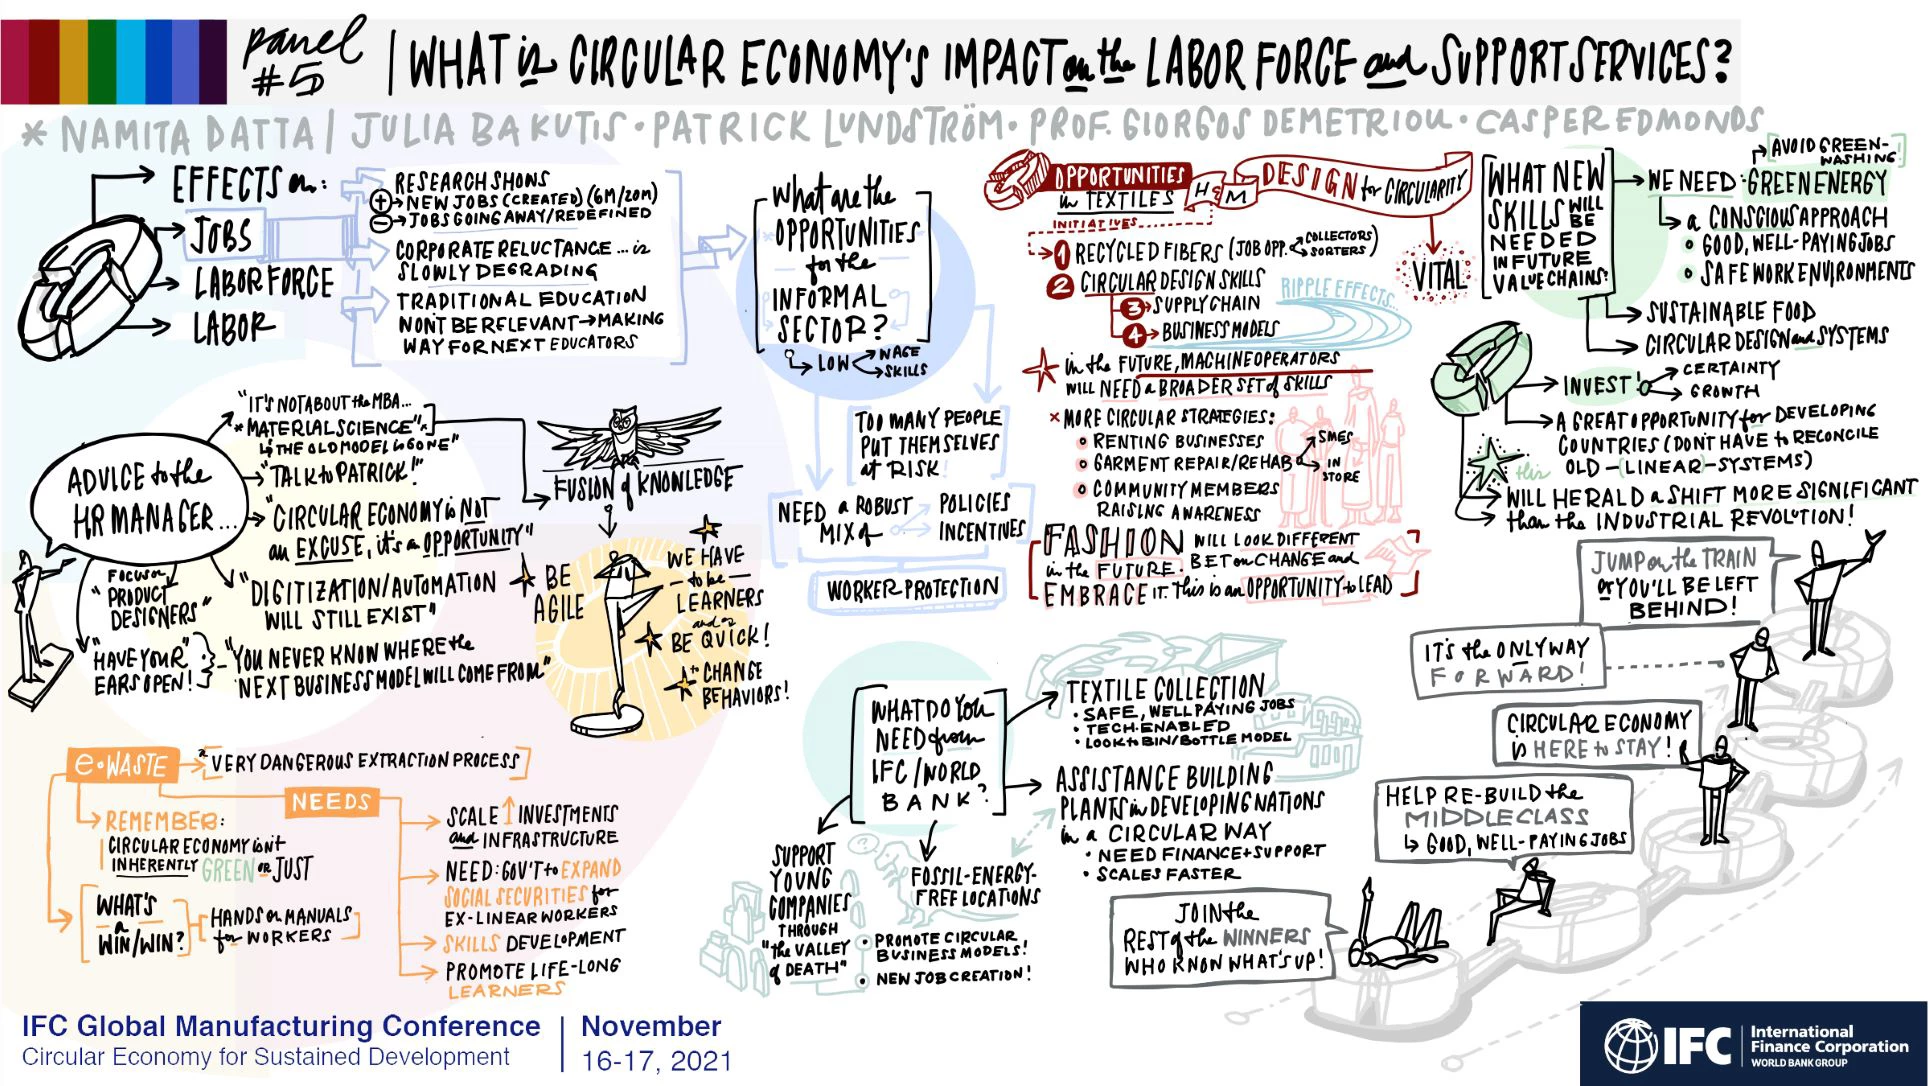 Panel #5 | WHAT is CIRCULAR ECONOMY'S IMPACT on the LABOR FORCE and SUPPORT SERVICES?
* NAMITA DATTA | JULIA BAKUTIS • PATRICK LUNDSTRÖM • PROF. GIORGOS DEMETRIOU • CASPER EDMONDS
EFFECTS on:
JOBS
LABOR FORCE
LABOR
RESEARCH SHOWS
+ → NEW JOBS (CREATED) (6M/20M)
− → JOBS GOING AWAY/REDEFINED
CORPORATE RELUCTANCE ... is
SLOWLY DEGRADING
TRADITIONAL EDUCATION
WON'T BE RELEVANT → MAKING
WAY FOR NEXT EDUCATORS
What are the
OPPORTUNITIES
for the
INFORMAL
SECTOR?
LOW
WAGE
SKILLS
TOO MANY PEOPLE
PUT THEMSELVES
at RISK!
NEED a ROBUST
MIX of
POLICIES
INCENTIVES
WORKER PROTECTION
OPPORTUNITIES
in TEXTILES
H&M
DESIGN for CIRCULARITY
VITAL
INITIATIVES
1 RECYCLED FIBERS (JOB OPP. COLLECTORS SORTERS)
2 CIRCULAR DESIGN SKILLS
3 → SUPPLY CHAIN
4 → BUSINESS MODELS
RIPPLE EFFECTS...
in the FUTURE, MACHINE OPERATORS
WILL NEED a BROADER SET of SKILLS
× MORE CIRCULAR STRATEGIES:
RENTING BUSINESSES
GARMENT REPAIR/REHAB
SMES
IN STORE
COMMUNITY MEMBERS
RAISING AWARENESS
FASHION WILL LOOK DIFFERENT
in the FUTURE. BET on CHANGE and
EMBRACE IT. This is an OPPORTUNITY to LEAD
WHAT NEW
SKILLS WILL BE
NEEDED
IN FUTURE
VALUE CHAINS?
AVOID GREEN-
WASHING!
WE NEED: GREEN ENERGY
a CONSCIOUS APPROACH
GOOD, WELL-PAYING JOBS
SAFE WORK ENVIRONMENTS
SUSTAINABLE FOOD
CIRCULAR DESIGN and SYSTEMS
INVEST!
CERTAINTY
GROWTH
A GREAT OPPORTUNITY for DEVELOPING
COUNTRIES (DON'T HAVE to RECONCILE
OLD -(LINEAR)- SYSTEMS)
this
WILL HERALD a SHIFT MORE SIGNIFICANT
than the INDUSTRIAL REVOLUTION!
ADVICE to the
HR MANAGER...
"IT'S NOT ABOUT the MBA...
*MATERIAL SCIENCE"
the OLD MODEL is GONE"
"TALK to PATRICK!"
"CIRCULAR ECONOMY is NOT
an EXCUSE, it's an OPPORTUNITY"
"DIGITIZATION/AUTOMATION
WILL STILL EXIST"
FOCUS on
"PRODUCT
DESIGNERS"
"HAVE YOUR
EARS OPEN!"
"YOU NEVER KNOW WHERE the
NEXT BUSINESS MODEL WILL COME FROM"
FUSION of KNOWLEDGE
BE
AGILE
WE HAVE
to be
LEARNERS
and
BE QUICK!
to CHANGE
BEHAVIORS!
e•WASTE
a VERY DANGEROUS EXTRACTION PROCESS
REMEMBER:
CIRCULAR ECONOMY isn't
INHERENTLY GREEN or JUST
WHAT'S
a
WIN/WIN?
HANDS on MANUALS
for WORKERS
NEEDS
SCALE ↑ INVESTMENTS
and INFRASTRUCTURE
NEED: GOV'T to EXPAND
SOCIAL SECURITIES for
EX-LINEAR WORKERS
SKILLS DEVELOPMENT
PROMOTE LIFE-LONG
LEARNERS
WHAT DO YOU
NEED from
IFC/WORLD
BANK?
TEXTILE COLLECTION
• SAFE, WELL PAYING JOBS
• TECH-ENABLED
• LOOK to BIN/BOTTLE MODEL
ASSISTANCE BUILDING
PLANTS in DEVELOPING NATIONS
in a CIRCULAR WAY
• NEED FINANCE + SUPPORT
• SCALES FASTER
SUPPORT
YOUNG
COMPANIES
THROUGH
"the VALLEY
of DEATH"
FOSSIL-ENERGY-
FREE LOCATIONS
PROMOTE CIRCULAR
BUSINESS MODELS!
NEW JOB CREATION!
JUMP on the TRAIN
or YOU'LL BE LEFT
BEHIND!
IT'S the ONLY WAY
FORWARD!
CIRCULAR ECONOMY
is HERE to STAY!
HELP RE-BUILD the
MIDDLE CLASS
↳ GOOD, WELL-PAYING JOBS
JOIN the
REST of the WINNERS
WHO KNOW WHAT'S UP!
IFC Global Manufacturing Conference
Circular Economy for Sustained Development
November
16-17, 2021
IFC
International
Finance Corporation
WORLD BANK GROUP